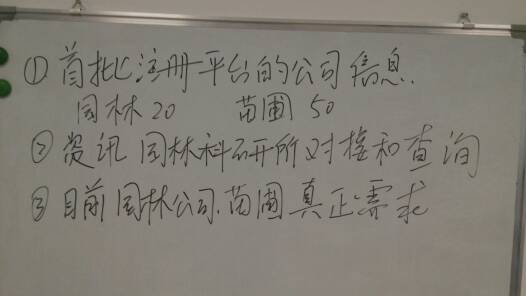 ①首批注册平台的公司信息.
园林20 苗圃50
②资讯园林科研所对接和查询
③目前园林公司.苗圃真正需求